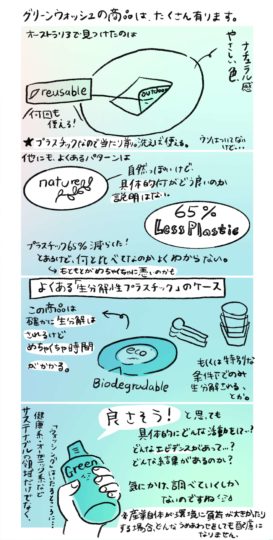 グリーンウォッシュの商品は、たくさん有ります。
オーストラリアで見つけたのは
ナチュラル感
やさしい色
reusable
outdoor
何回も
使える!
★プラスチックなので当たり前。洗えば使える。
ウソはついてない
けど…
他にも、よくあるパターンは
自然っぽいけど、
具体的に何がどう良いのか
説明はない。
65%
LessPlastic
プラスチック65%減らした!
とあるけど、何と比べてなのかよくわからない。
↳もともとがめちゃくちゃに悪いのかも
よくある「生分解性プラスチック」のケース
この商品は
確かに生分解は
されるけど
めちゃくちゃ時間
がかかる。
eco
Biodegradable
もしくは特別な
条件下でのみ
生分解される、
とか。
良さそう!と思っても
具体的にどんな活動をして…?
どんなエビデンスがあって…?
どんな系譜があるのか?
気にかけ、調べていくしか
ないのですね
Green
「ウォッシング」はいたるところに…
健康系・オーガニック系など
サステナブルの領域だけでなく、
※産業自体が環境に負荷が大きかったり
する場合、どんなうめあわせをしても配慮に
なりません。